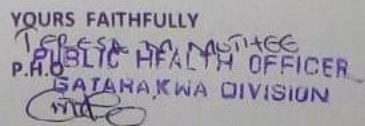 YOURS FAITHFULLY
TERESA M. MUTHEE
P.H.O PUBLIC HEALTH OFFICER
GATARAKWA DIVISION